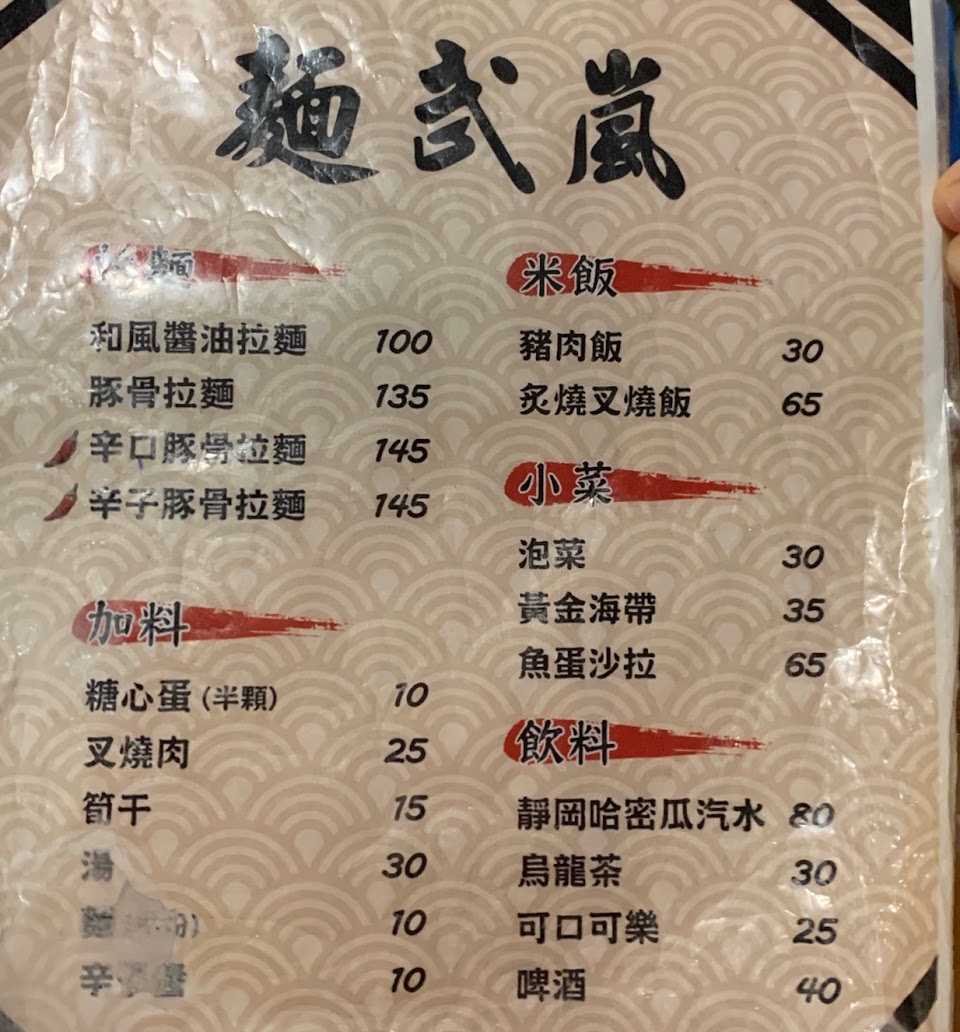 麵武嵐
麵
和風醬油拉麵 100
豚骨拉麵 135
辛口豚骨拉麵 145
辛子豚骨拉麵 145
加料
糖心蛋(半顆) 10
叉燒肉 25
筍干 15
湯 30
麵 10
辛子醬 10
米飯
豬肉飯 30
炙燒叉燒飯 65
小菜
泡菜 30
黃金海帶 35
魚蛋沙拉 65
飲料
靜岡哈密瓜汽水 80
烏龍茶 30
可口可樂 25
啤酒 40